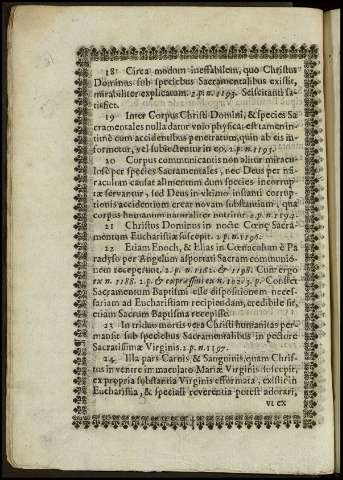 18 Circa modum ineffabilem, quo Christus
Dominus sub speciebus Sacramentalibus existit,
mirabiliter explicatum. 2.p.n.1193. Sciscitanti sa-
tisfiet.
19 Inter Corpus Christi Domini, & species Sa
cramentales nulla datur vnio physica: est tamen in
timè cum accidentibus penetratum, quin ab eis in
formetur, vel subiectentur in eo. 2.p.n.1193.
20 Corpus communicantis non alitur miracu
losè per species Sacramentales, nec Deus per mi-
raculum causat alimentum dum species incorrup
tæ servantur, sed Deus in vltimo instanti corrup-
tionis accidentium creat novam substantiam, qua
corpus humanum naturaliter nutritur. 2.p.n.1194.
21 Christus Dominus in nocte Cœnæ Sacra-
mentum Eucharistiæ suscepit. 2.p.n.1197.
22 Etiam Enoch, & Elias in Cœnaculum è Pa
radyso per Angelum asportati Sacram communio-
nem receperunt. 2.p.n.1182. & 1198. Cum ergo
ex n. 1188. 2.p. & expressius ex n.1203. p. Constet
Sacramentum Baptismi esse dispositionem neces-
sariam ad Eucharistiam recipiendam, credibile sit,
etiam Sacrum Baptisma recepisse.
23 In triduo mortis vera Christi humanitas per-
mansit sub speciebus Sacramentalibus in pectore
Sacratissimæ Virginis. 2.p.n.1197.
24 Illa pars Carnis, & Sanguinis, quam Chris-
tus in ventre immaculato Mariæ Virginis suscepit,
ex propria substantia Virginis efformata, existit in
Eucharistia, & speciali reverentia potest adorari,
vt ex